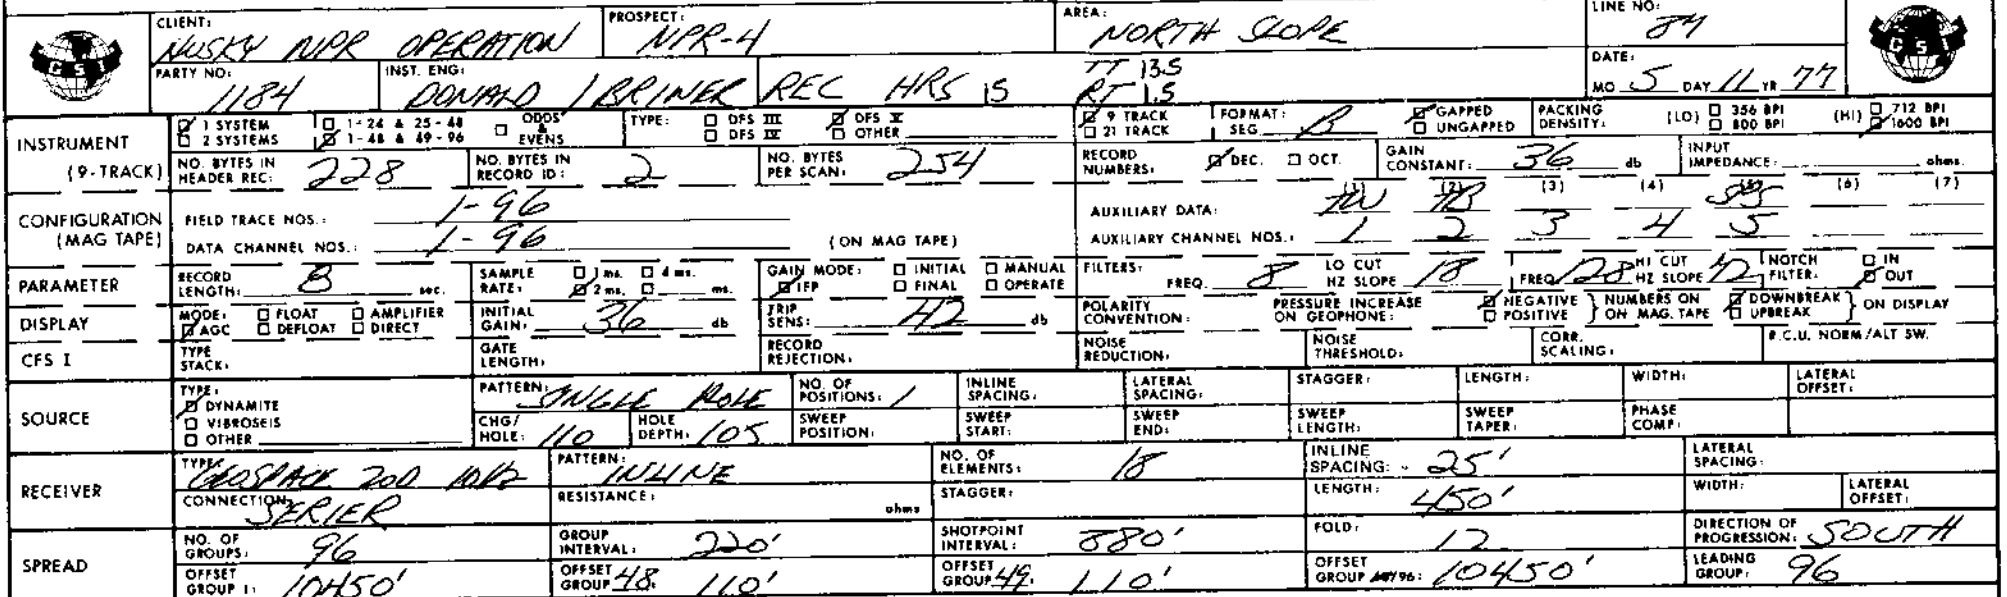 CLIENT: HUSKY NPR OPERATION PROSPECT: NPR-4 AREA: NORTH SLOPE LINE NO: 87
GSI GSI
PARTY NO: 1184 INST. ENG: DONALD / BRINER REC HRS 15 TT 13.5 RT 1.5 DATE: MO 5 DAY 11 YR 77
INSTRUMENT (9-TRACK) 1 SYSTEM 1-24 & 25-48 ODDS & EVENS TYPE: DFS III DFS V 9 TRACK FORMAT: SEG B GAPPED PACKING DENSITY: (LO) 356 BPI (HI) 712 BPI
2 SYSTEMS 1-48 & 49-96 DFS IV OTHER 21 TRACK UNGAPPED 800 BPI 1600 BPI
NO. BYTES IN HEADER REC: 228 NO. BYTES IN RECORD ID: 2 NO. BYTES PER SCAN: 254 RECORD NUMBERS: DEC. OCT. GAIN CONSTANT: 36 db INPUT IMPEDANCE: ohms.
CONFIGURATION (MAG TAPE) FIELD TRACE NOS.: 1-96 AUXILIARY DATA: (1) (2) TB (3) (4) (5) (6) (7)
DATA CHANNEL NOS.: 1-96 (ON MAG TAPE) AUXILIARY CHANNEL NOS.: 1 2 3 4 5
PARAMETER RECORD LENGTH: 8 sec. SAMPLE RATE: 1 ms. 4 ms. 2 ms. ms. GAIN MODE: INITIAL MANUAL IFP FINAL OPERATE FILTERS: FREQ. 8 LO CUT HZ SLOPE 18 FREQ. 128 HI CUT HZ SLOPE 72 NOTCH FILTER: IN OUT
DISPLAY MODE: FLOAT AMPLIFIER AGC DEFLOAT DIRECT INITIAL GAIN: 36 db TRIP SENS: 42 db POLARITY CONVENTION: PRESSURE INCREASE ON GEOPHONE: NEGATIVE POSITIVE } NUMBERS ON ON MAG. TAPE DOWNBREAK UPBREAK } ON DISPLAY
CFS I TYPE STACK: GATE LENGTH: RECORD REJECTION: NOISE REDUCTION: NOISE THRESHOLD: CORR. SCALING: R.C.U. NORM/ALT SW.
SOURCE TYPE: DYNAMITE VIBROSEIS OTHER PATTERN: SINGLE HOLE NO. OF POSITIONS: 1 INLINE SPACING: LATERAL SPACING: STAGGER: LENGTH: WIDTH: LATERAL OFFSET:
CHG/HOLE: 110 HOLE DEPTH: 105 SWEEP POSITION: SWEEP START: SWEEP END: SWEEP LENGTH: SWEEP TAPER: PHASE COMP:
RECEIVER TYPE: GEOSPACE 20D 10HZ PATTERN: INLINE NO. OF ELEMENTS: 18 INLINE SPACING: 25' LATERAL SPACING:
CONNECTION: SERIER RESISTANCE: ohms STAGGER: LENGTH: 450' WIDTH: LATERAL OFFSET:
SPREAD NO. OF GROUPS: 96 GROUP INTERVAL: 220' SHOTPOINT INTERVAL: 880' FOLD: 12 DIRECTION OF PROGRESSION: SOUTH
OFFSET GROUP 1: 10450' OFFSET GROUP 48: 110' OFFSET GROUP 49: 110' OFFSET GROUP 96: 10450' LEADING GROUP: 96